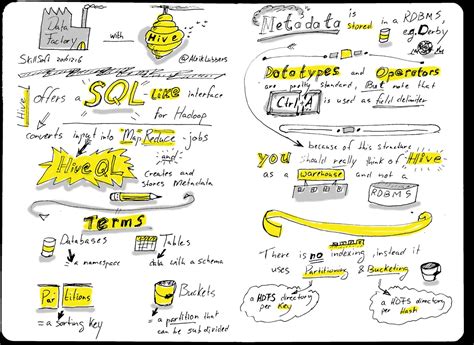 Data
Factory
with
Hive
@AlrikLubbers
Hive
offers a SQL Like interface
for Hadoop
converts input into MapReduce jobs
and
HiveQL
Creates and
stores Metadata
Terms
Databases
= a namespace
Tables
data with a schema
Partitions
= a sorting Key
Buckets
= a partition that
can be subdivided
Metadata is
stored in a
RDBMS,
e.g. Derby
Datatypes and Operators
are pretty standard, But note that
Ctrl A is used as field delimiter
because of this structure
you should really think of Hive
as a warehouse and not a
RDBMS
There is no indexing, instead it
uses Partitioning & Bucketing
a HDFS directory
per Key
a HDFS directory
per Hash